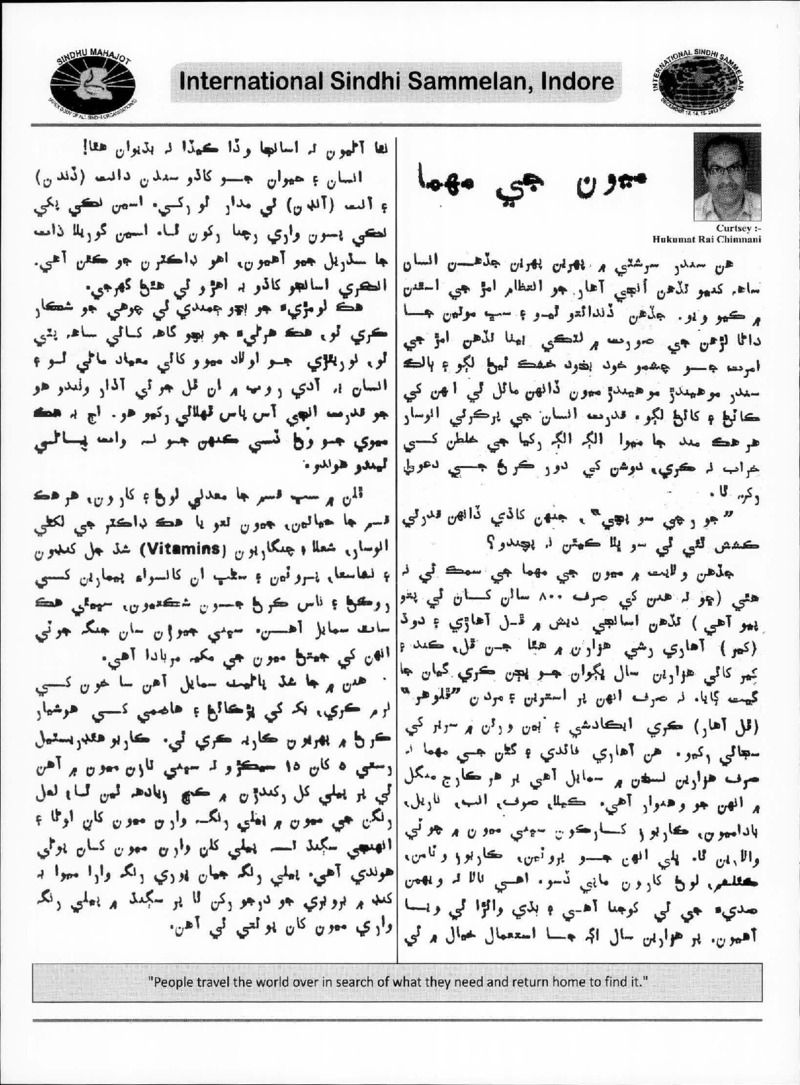 SINDHU MAHAJOT
International Sindhi Sammelan, Indore
INTERNATIONAL SINDHI SAMMELAN
Curtsey :-
Hukumat Rai Chimnani
ميون جي مهما
هن سندر سرشٽي ۾ پهرين پهرين جڏهن انسان
ساهه کنيو تڏهن اُنجي آهار جو انتظام امڙ جي استنن
۾ ڪيو ويو. جڏهن ڏندائتو ٿيو ۽ سڀ موتين جا
داڻا لڙهن جي صورت ۾ لٽڪي پيا تڏهن امڙ جي
امرت جو چشمو خود بخود خشڪ ٿيڻ لڳو ۽ بالڪ
سندر موهيندڙ موهيندڙ ميون ڏانهن مائل ٿي انهن کي
کائڻ ۽ کائڻ لڳو. قدرت انسان جي پرڪرتي انوسار
هر هڪ مند جا ميوا الڳ الڳ رکيا جي خلطن کي
خراب نه ڪري، دوشن کي دور ڪرڻ جي دعويٰ
رکن ٿا.
"جو رچي سو پچي"، جنهن کاڌي ڏانهن قدرتي
ڪشش ٿئي ٿي سو ڀلا ڪيئن نه پچندو؟
جڏهن ولايت ۾ ميون جي مهما جي سمڪ ئي نه
هئي (ڇو ته هنن کي صرف ٨٠٠ سالن کان ئي پتو
پيو آهي) تڏهن اسانجي ديش ۾ ڦل آهاري ۽ دوڌ
(کير) آهاري رشي هزارن ۾ هئا جن ڦل، ڪند ۽
کير کائي هزارين سال ڀڳوان جو ڀڄن ڪري گيان جا
گيت ڳايا. نه صرف انهن پر استرين ۽ مردن "ڦلوهر"
(ڦل آهار) ڪري ايڪادشي ۽ ٻين ورتن ۾ سرير کي
سڃائي رکيو. هن آهاري فائدي ۽ گڻن جي مهما نه
صرف هزارين نسخن ۾ سمايل آهي پر هر ڪارج منگل
۾ انهن جو وهنوار آهي. ڪيلا، صوف، انب، ناريل،
باداميون، ڪاربوز کارڪون سڀني ميون ۾ چوٽي
والارين ٿا. ڀلي انهن جو پروٽين، ڪاربوز وٽامن،
ڪئلشم، لوڻ کارون ماپي ڏسو. اهي نالا ته ويهين
صديءَ جي ئي کوجنا آهي ۽ ٻڌي وائڙا ٿي ويا
آهيون. پر هزارين سال اڳ جا استعمال خيال ۾ ئي
نٿا آڻيون ته اسانجا وڏا ڪيڏا نه ٻڌيوان هئا!
انسان ۽ حيوان جو کاڌو سندن دانت (ڏندن)
۽ آنت (آنڊن) تي مدار ٿو رکي. اسين نڪي پکي
نڪي پسون واري رچنا رکون ٿا. اسين گوريلا ذات
جا سڌريل جيو آهيون، اهو ڊاڪٽرن جو ڪٿن آهي.
انڪري اسانجو کاڌو به اهڙو ئي هئڻ گهرجي.
هڪ لومڙيءَ جو ٻچو ڄمندي ئي چوهي جو شڪار
ڪري ٿو، هڪ هرڻيءَ جو ٻچو گاهه کائي ساهه پٽي
ٿو، نوريئڙي جو اولاد ميوو کائي معياد ماڻي ٿو ۽
انسان به آدي روپ ۾ ان ڦل جو ئي آڌار وٺندو هو
جو قدرت انجي آس پاس ڦهلائي رکيو هو. اڄ به هڪ
ميوي جو وڻ ڏسي ڪنهن جو نه وات پاڻي
ٿيندو هوندو.
ڦلن ۾ سڀ قسم جا معدني لوڻ ۽ کارون، هر هڪ
قسم جا حياتين، جيون تتو يا هڪ ڊاڪٽر جي لکڻي
انوسار، شعلا ۽ چنگاريون (Vitamins) شڌ جل کنڊون
۽ نشاستا، پروٽين ۽ سڻڀ ان کانسواءِ بيمارين کي
روڪڻ ۽ ناس ڪرڻ جون شڪتيون، سڀئي هڪ
ساٿ سمايل آهن. سڀني جيوڙن سان جنگ جوٽي
انهن کي جيتڻ ميون جي مکيه مريادا آهي.
هنن ۾ جا شڌ پاڻيٺ سمايل آهن سا خون کي
نرم ڪري، بک کي ڀڙڪائڻ ۽ هاضمي کي هوشيار
ڪرڻ ۾ ڀهريون ڪاريه ڪري ٿي. ڪاربوهئڊريٽسيل
رستي ٥ کان ١٥ سيڪڙو ته سڀني تازن ميون ۾ آهن
ئي پر پيلي کل رکندڙن ۾ ڪڇ زيادهه ٿين ٿا، لعل
رنگن جي ميون ۾ پيلي رنگ وارن ميون کان اوڻا ۽
انهنجي سڳنڌ ته پيلي کلن وارن ميون کان پوئتي
هوندي آهي. پيلي رنگ جيان ڀوري رنگ وارا ميوا به
کنڊ ۾ برابري جو درجو رکن ٿا پر سڳنڌ ۾ پيلي رنگ
واري ميون کان پوئتي ئي آهن.
"People travel the world over in search of what they need and return home to find it."